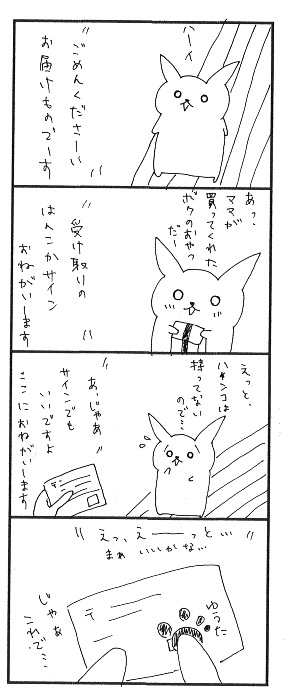 ハーイ
"ごめんくださーい
お届けものでーす"
あっ、
ママが
買ってくれた
ボクのおやつ
だー
"受け取りの
はんこかサイン
おねがいします"
えっと、
ハンコは
持ってない
ので…
"あ、じゃあ
サインでも
いいですよ
ここにおねがいします"
〒
"えっ、えーーっと…"
まぁ いいかな…
〒
ゆうた
じゃあ
これで…